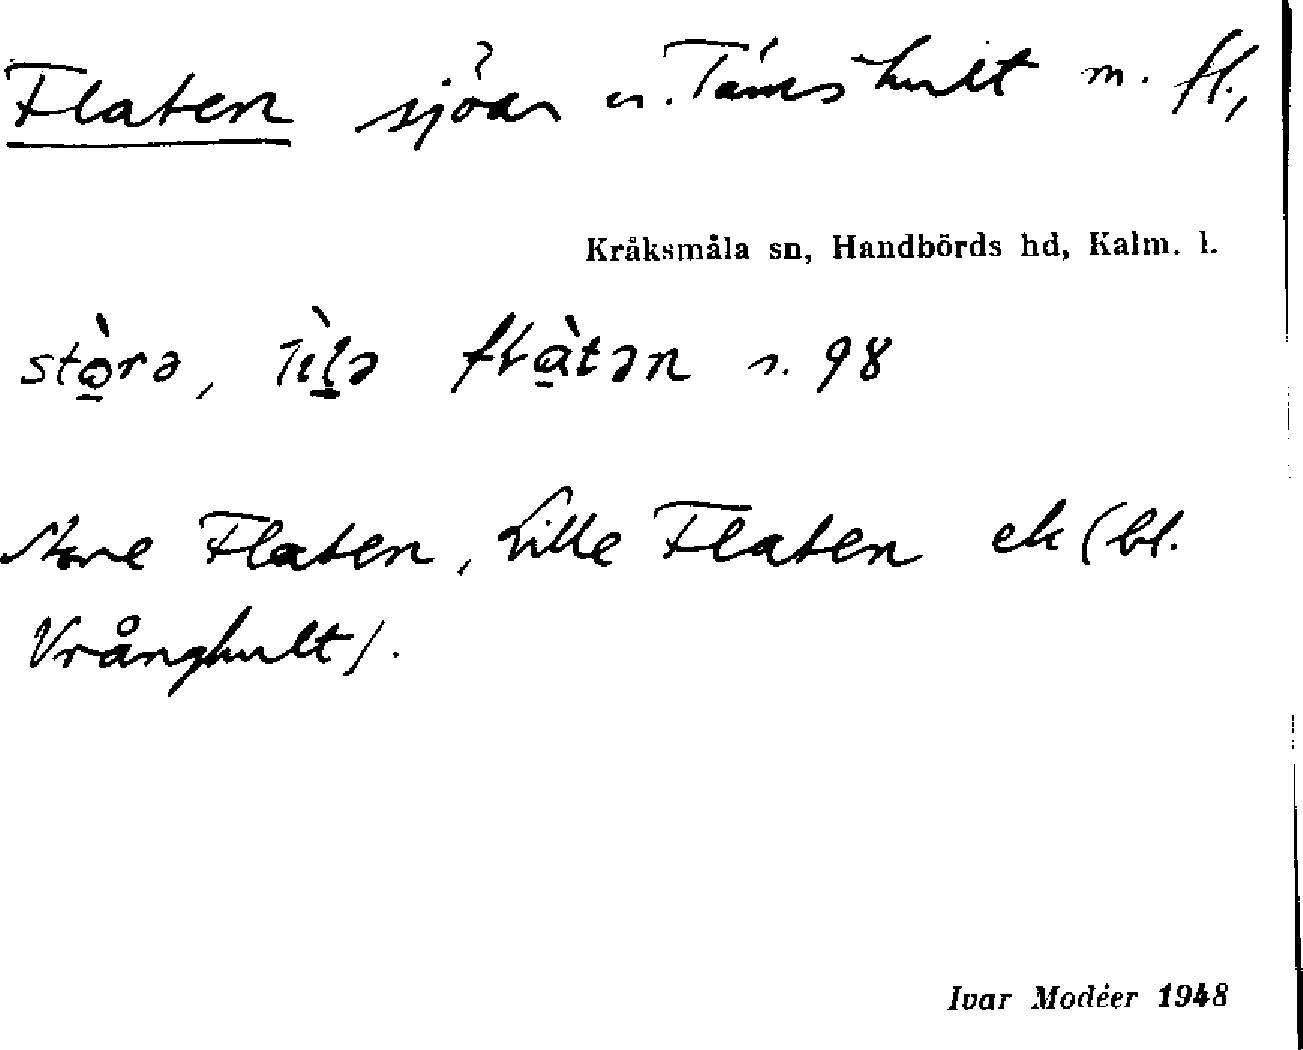 Flaten sjöar u. Tämshult m. fl.,
Kråksmåla sn, Handbörds hd, Kalm. l.
stòrə, lìlə flàtən s. 98
Store Flaten, Lille Flaten ek (bl.
Vrånghult).
Ivar Modéer 1948